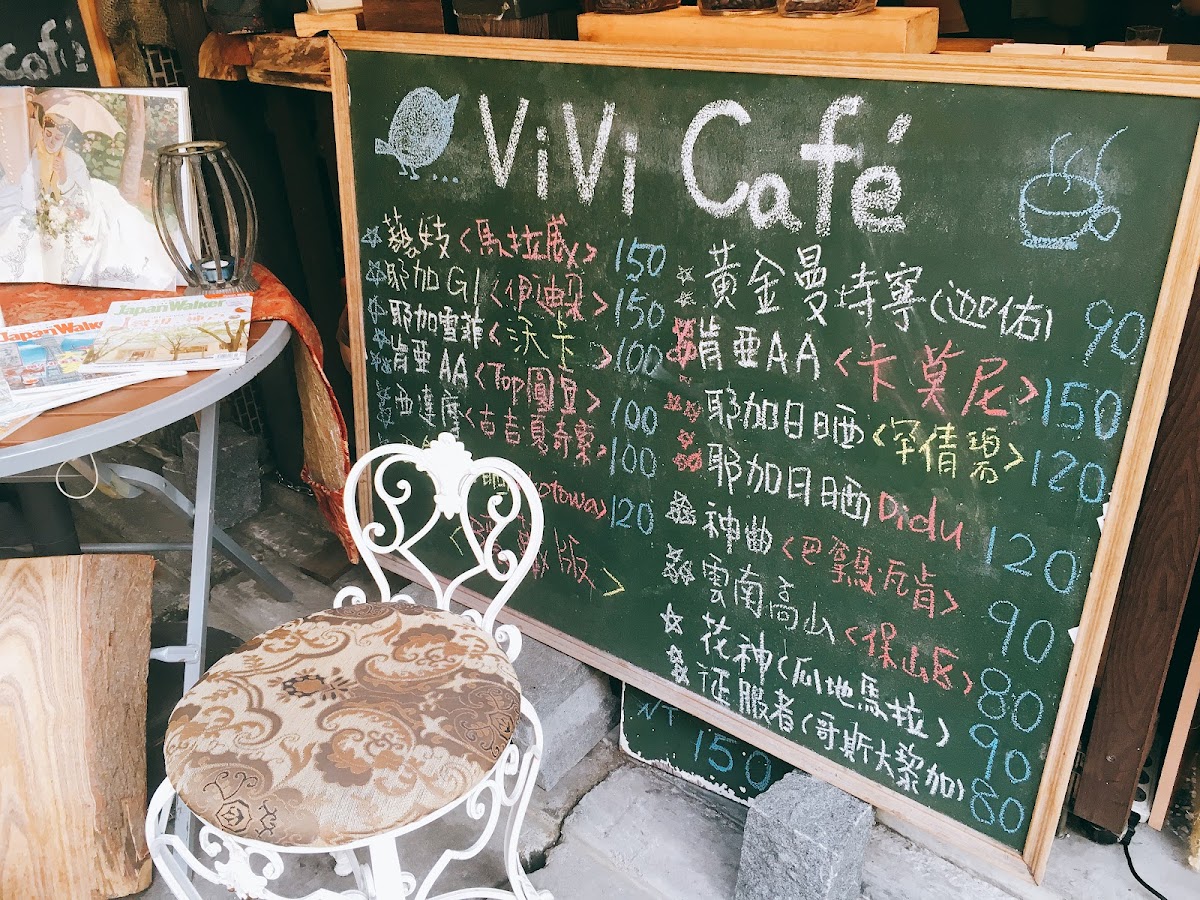 Café
JapanWalker
JapanWalker
ViVi Café
藝妓<馬拉威> 150
耶加G1<伊迪朵> 150
耶加雪菲<沃卡> 100
肯亞AA<Top圓豆> 100
西達摩<古吉夏奇索> 100
晒 otowa> 120
版>
黃金曼特寧(迦佑) 90
肯亞AA<卡莫尼> 150
耶加日晒<罕倩碧> 120
耶加日晒Didu 120
神曲<巴拿馬·瓦肯> 90
雲南高山<保山區> 80
花神(瓜地馬拉) 90
征服者(哥斯大黎加) 80
NT
150